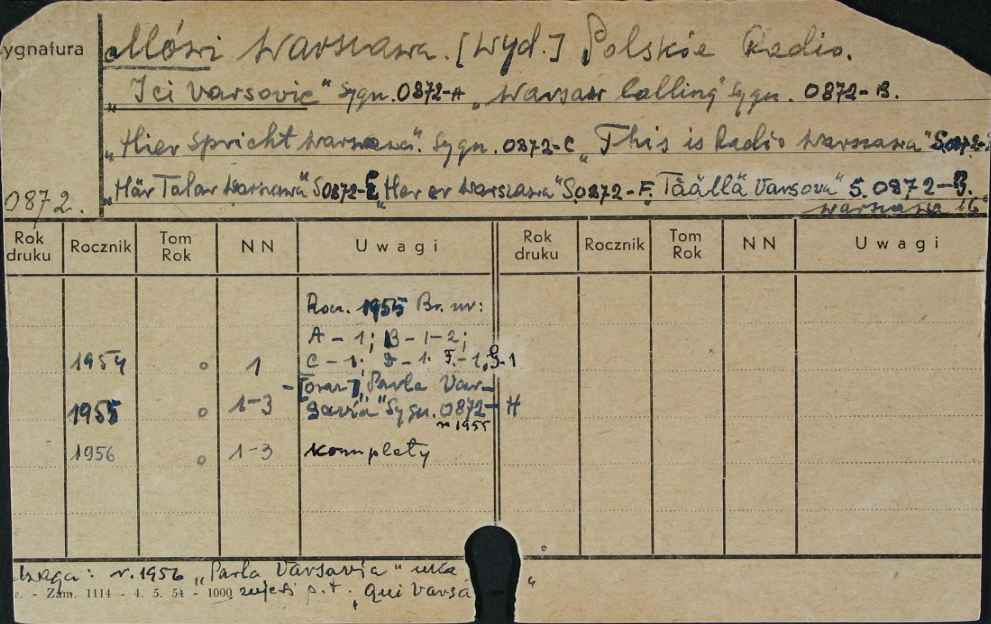 ygnatura
Mówi Warszawa. [Wyd.] Polskie Radio.
„Ici Varsovie" Sygn. 0872-A „Warsaw Calling" Sygn. 0872-B.
„Hier spricht Warszawa". Sygn. 0872-C „This is Radio Warszawa" S. 0872-
0872. „Här Talar Warszawa" S 0872-E „Her er Warszawa" S. 0872-F. Täällä Varsova" S. 0872-G.
Warszawa 16°
Rok druku Rocznik Tom Rok NN Uwagi Rok druku Rocznik Tom Rok NN Uwagi
Rocz. 1955 Br. nr:
A-1; B-1-2;
1954 o 1 C-1; D-1. F.-1, G-1
[oraz], „Parla Var-
1955 o 1-3 savia" Sygn. 0872-H
r. 1955
1956 o 1-3 komplety
Uwaga: r. 1956 „Parla Varsavia"
. - Zam. 1114 - 4. 5. 54 - 1000 p.t. „Qui Varsa "